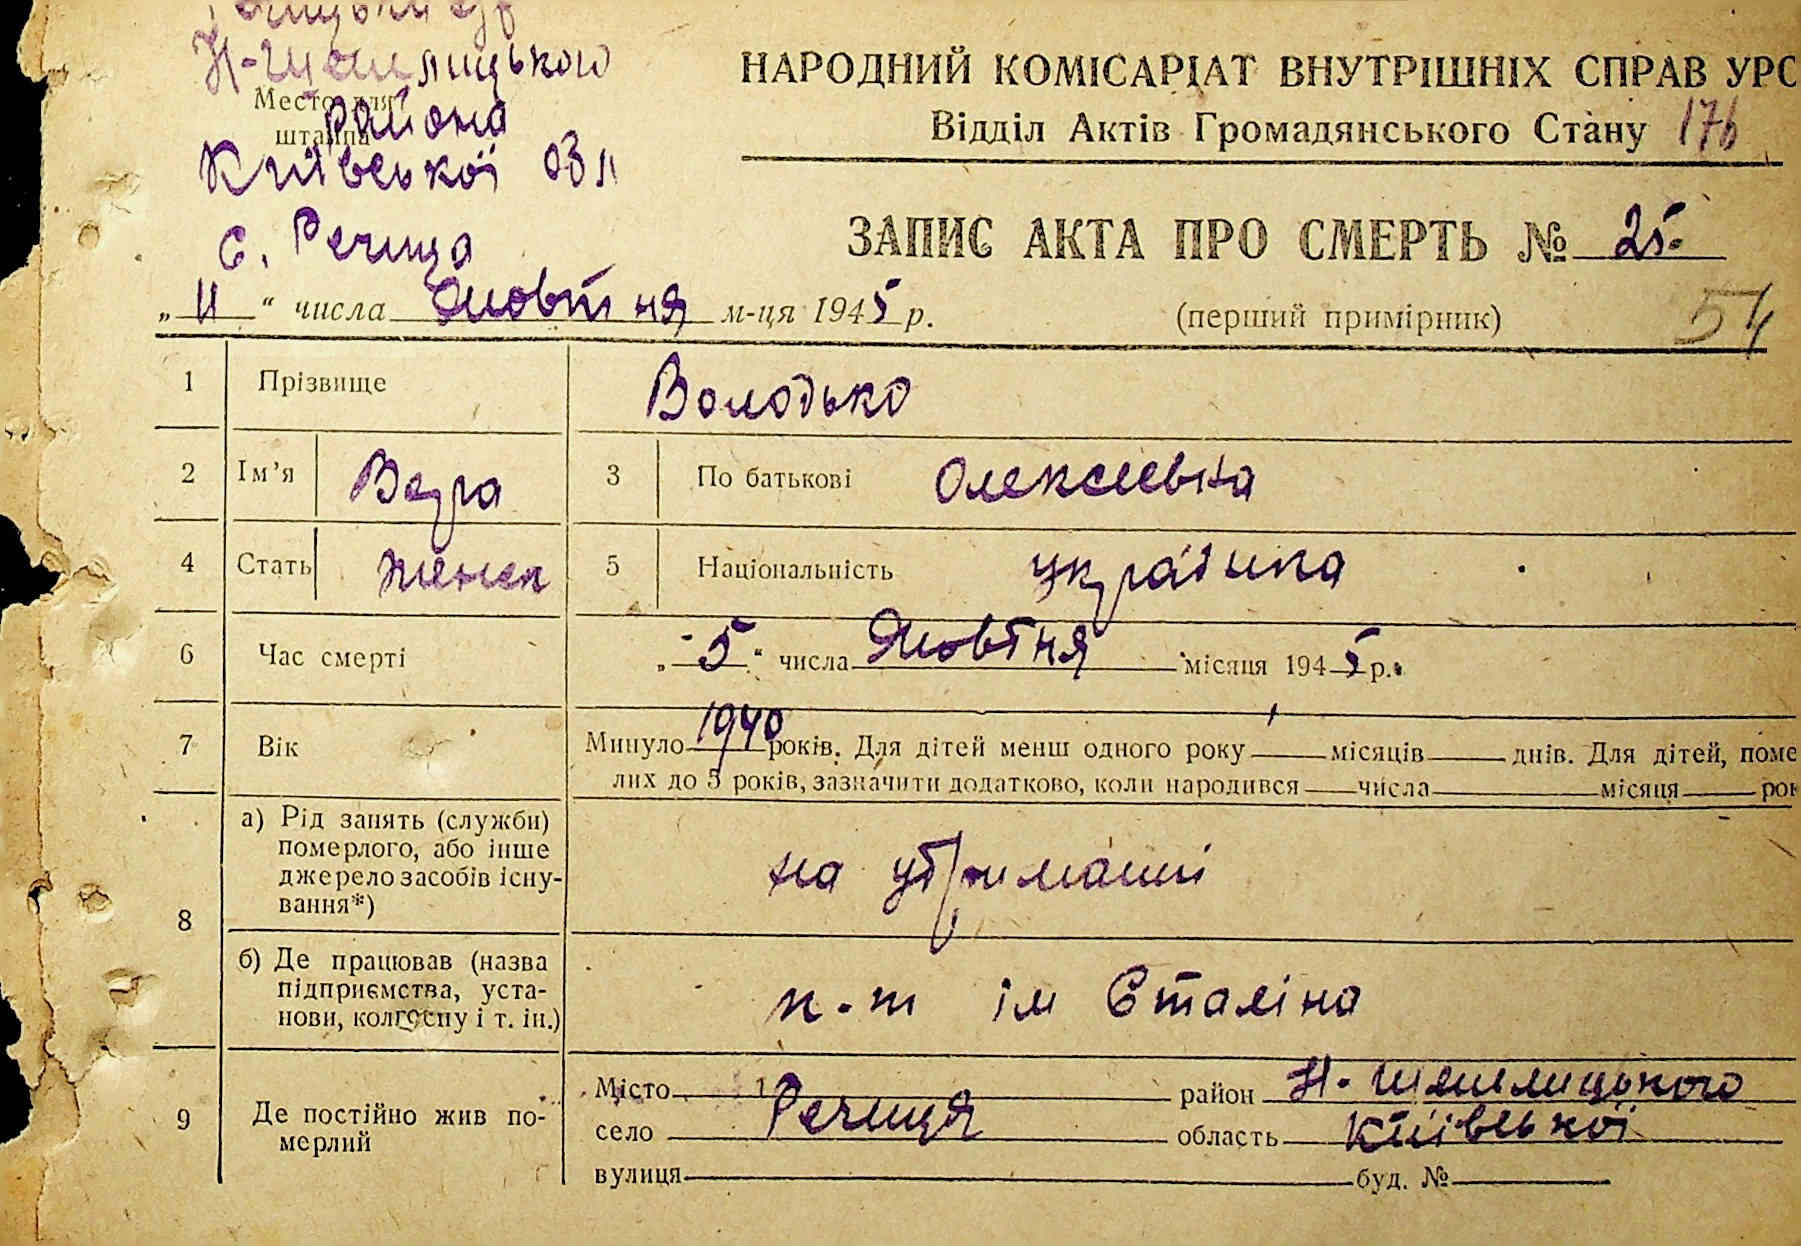 Н-Шепелицького
Место для
района
штампа
Київської обл
с. Речица
НАРОДНИЙ КОМІСАРІАТ ВНУТРІШНІХ СПРАВ УРС
Відділ Актів Громадянського Стану 176
ЗАПИС АКТА ПРО СМЕРТЬ № 25
„ 11 “ числа Жовтня м-ця 1945 р. (перший примірник) 54
1 Прізвище Володько
2 Ім’я Вера 3 По батькові Олексеевна
4 Стать женск 5 Національність українка
6 Час смерті „ 5 “ числа Жовтня місяця 1945 р.
7 Вік Минуло 1940 років. Для дітей менш одного року місяців днів. Для дітей, поме
лих до 5 років, зазначити додатково, коли народився числа місяця рок
8 а) Рід занять (служби)
померлого, або інше
джерело засобів існу-
вання*)
на утриманні
б) Де працював (назва
підприємства, уста-
нови, колгоспу і т. ін.)
к-т ім Сталіна
9 Де постійно жив по-
мерлий
Місто район Н-Шепелицького
село Речиця область Київської
вулиця буд. №